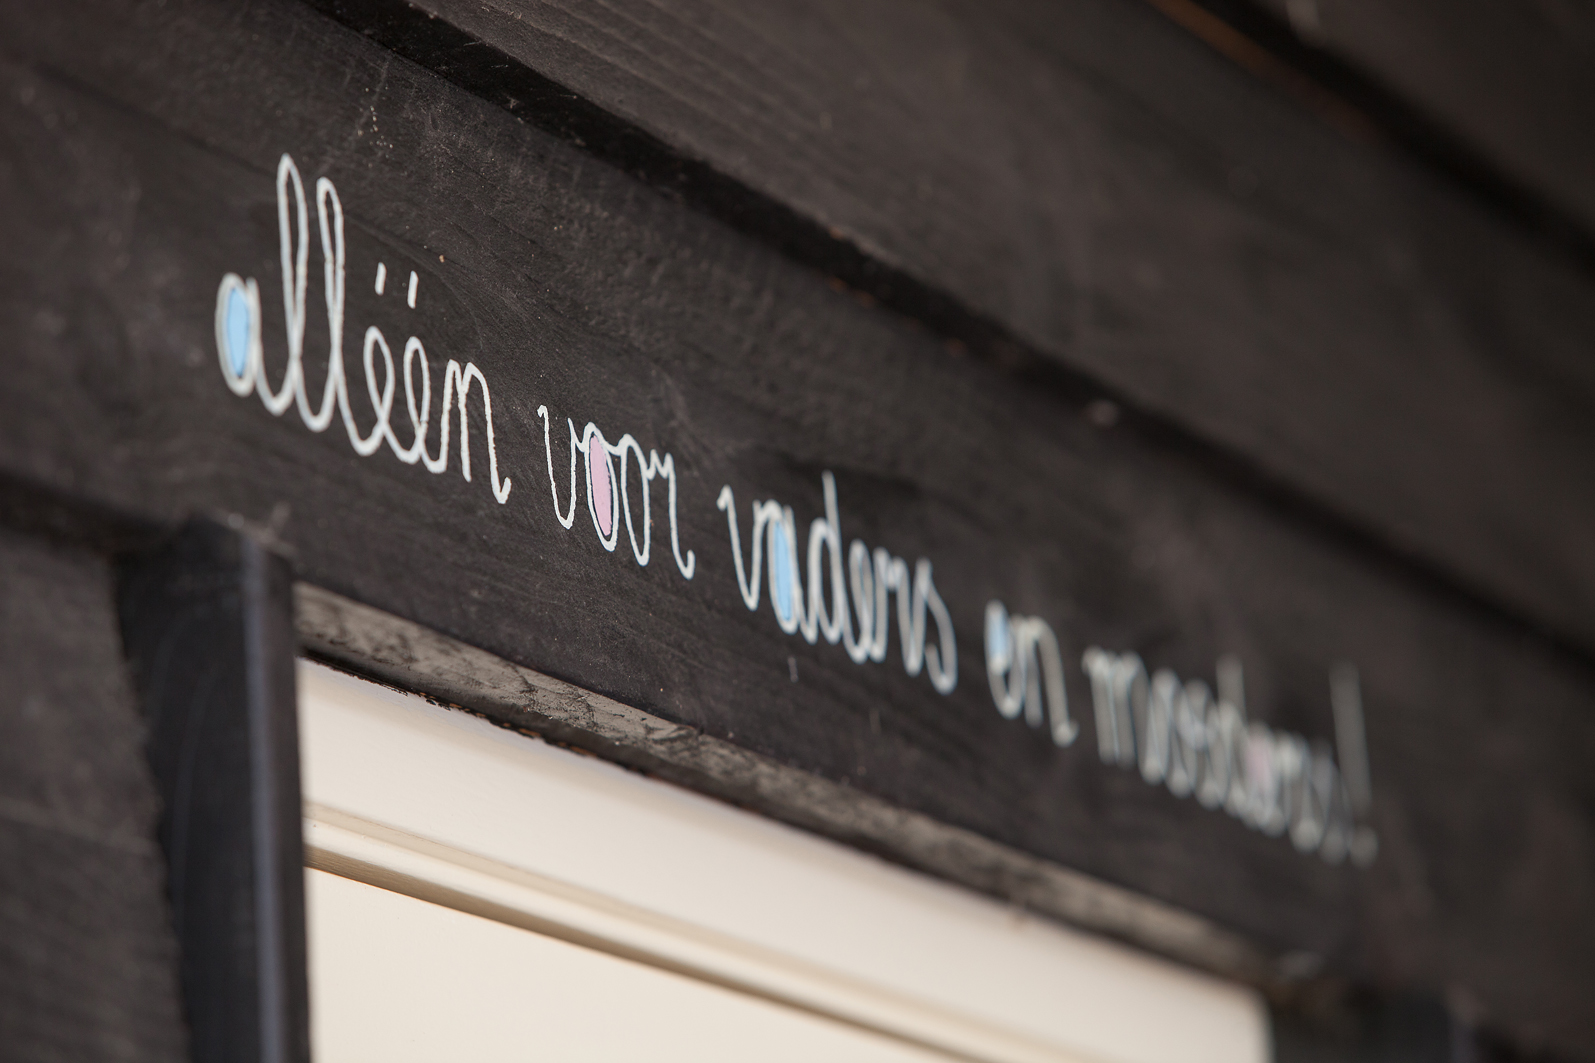 allëën voor vaders en meesters!